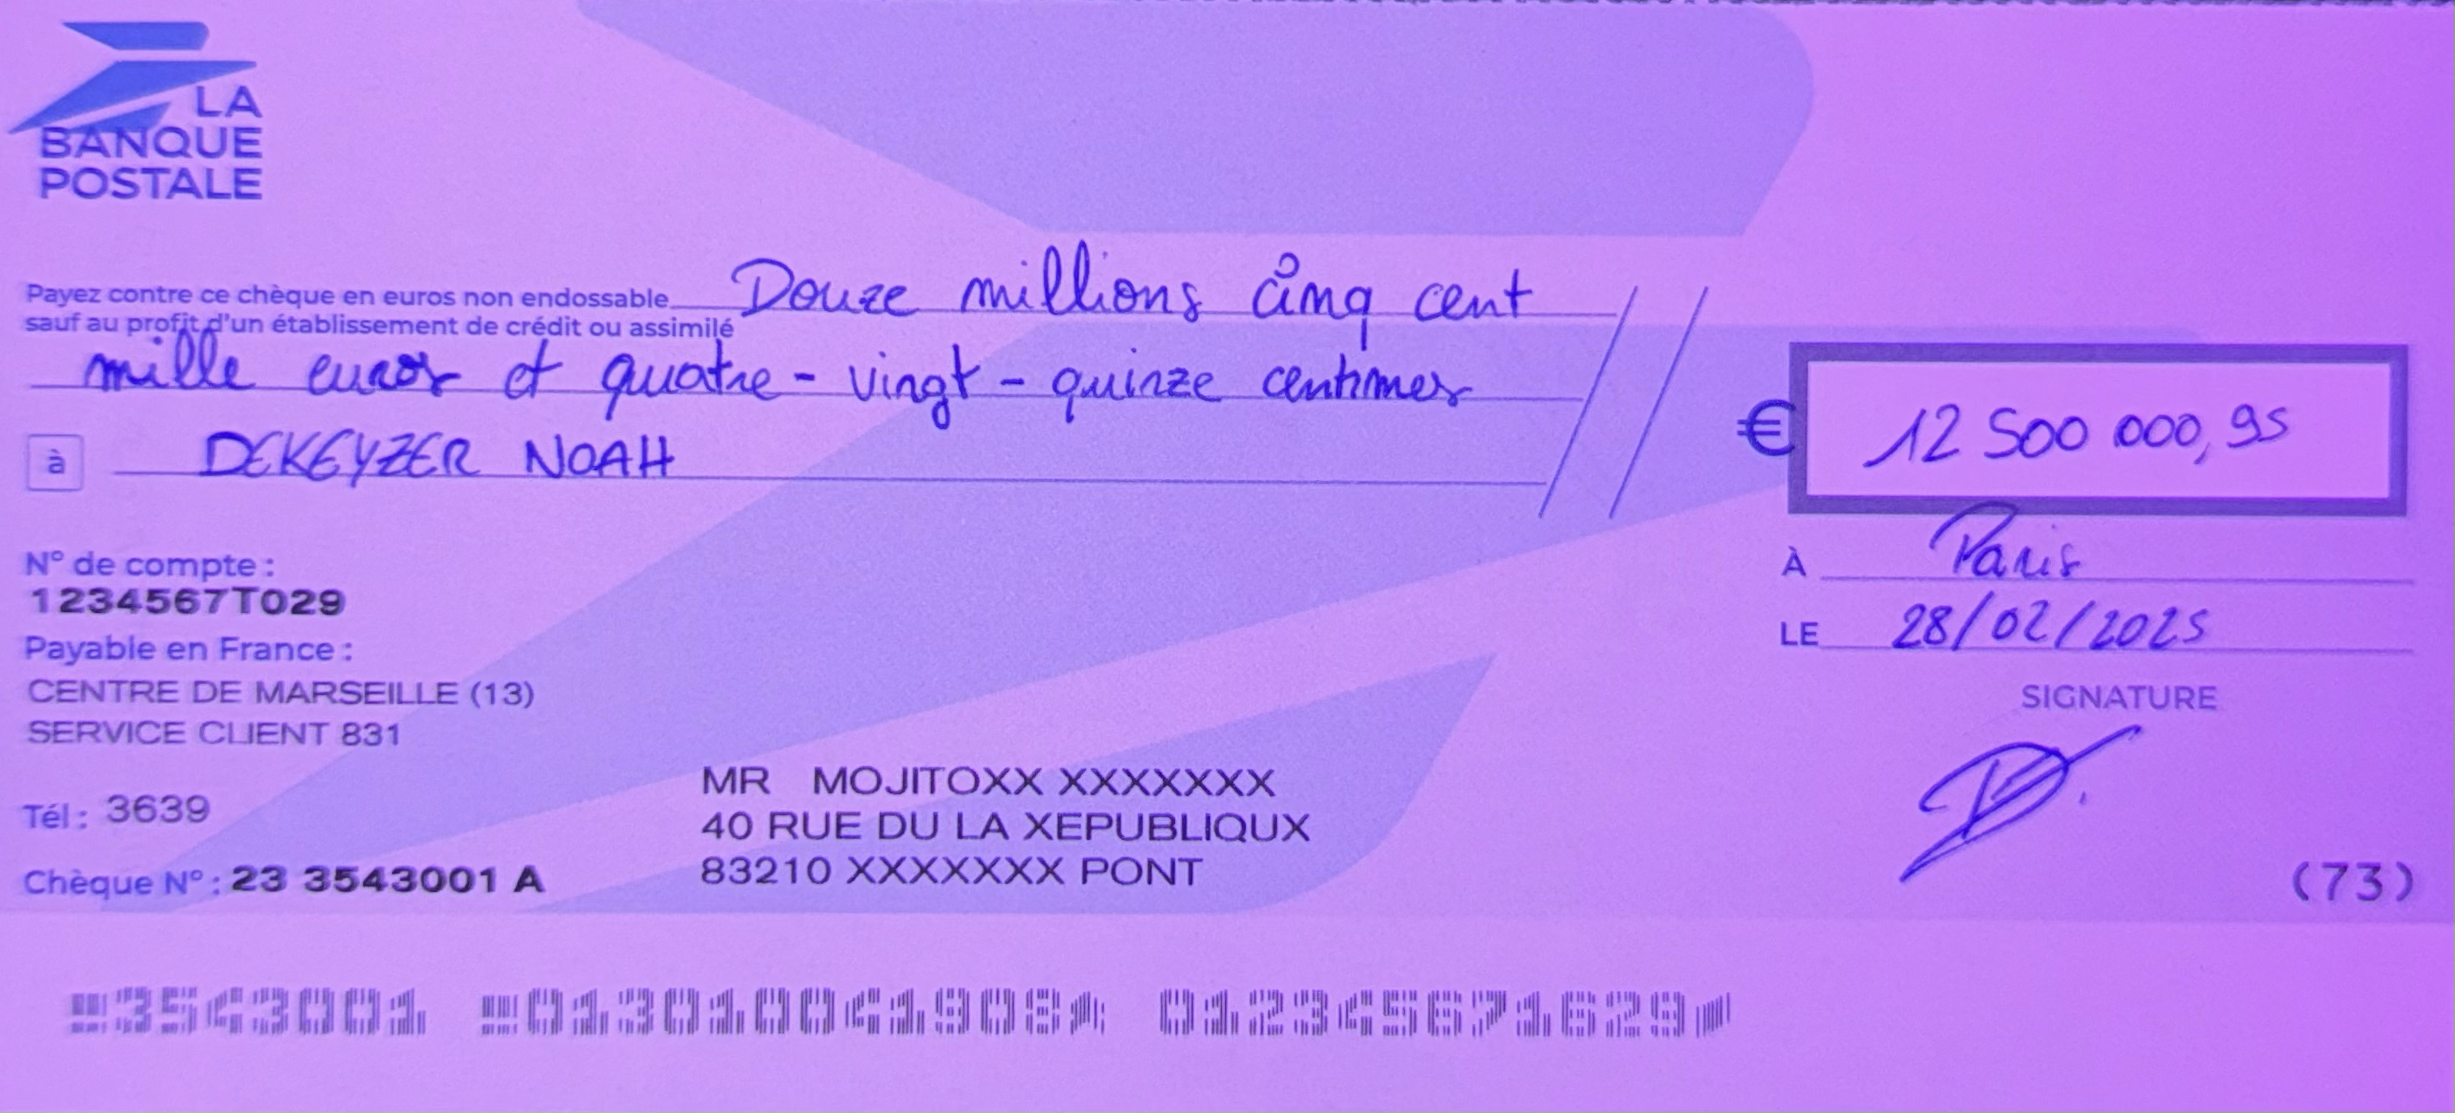 LA
BANQUE
POSTALE
Payez contre ce chèque en euros non endossable
sauf au profit d'un établissement de crédit ou assimilé
Douze millions cinq cent
mille euros et quatre-vingt-quinze centimes
à DEKEYZER NOAH
€ 12 500 000,95
À Paris
LE 28/02/2025
SIGNATURE
N° de compte :
1234567T029
Payable en France :
CENTRE DE MARSEILLE (13)
SERVICE CLIENT 831
Tél : 3639
Chèque N° : 23 3543001 A
MR MOJITOXX XXXXXXX
40 RUE DU LA XEPUBLIQUX
83210 XXXXXXX PONT
(73)
3543001 013010041908 012345671629